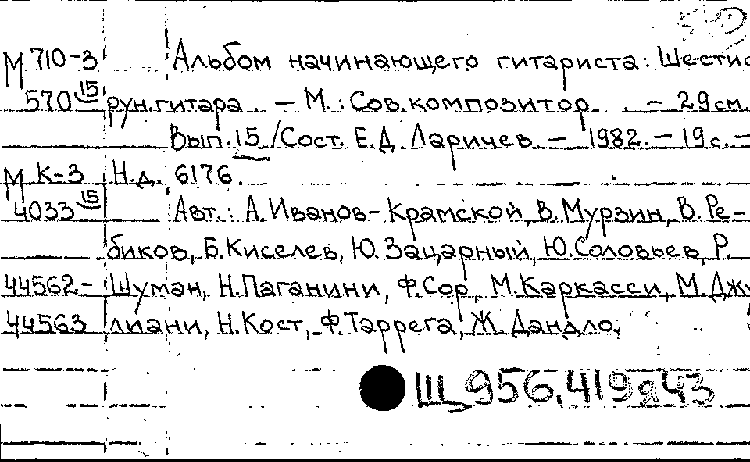 М 710-3 Альбом начинающего гитариста: Шестис
570 15 рун. гитара. – М.: Сов. композитор. – 29 см.
Вып. 15 / Сост. Е.Д. Ларичев – 1982. – 19 с. –
М К-3 Н.д. 6176.
4033 15 Авт.: А. Иванов-Крамской, В. Мурзин, В. Ре-
биков, Б. Киселев, Ю. Зацарный, Ю. Соловьев, Р.
44562- Шуман, Н. Паганини, Ф. Сор, М. Каркасси, М. Джу
44563 лиани, Н. Кост, Ф. Таррега, Ж. Дандло.
Щ 956.419я43